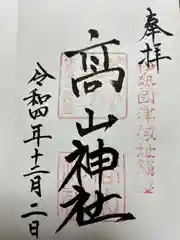 奉拝
髙山神社
令和四年十二月二日